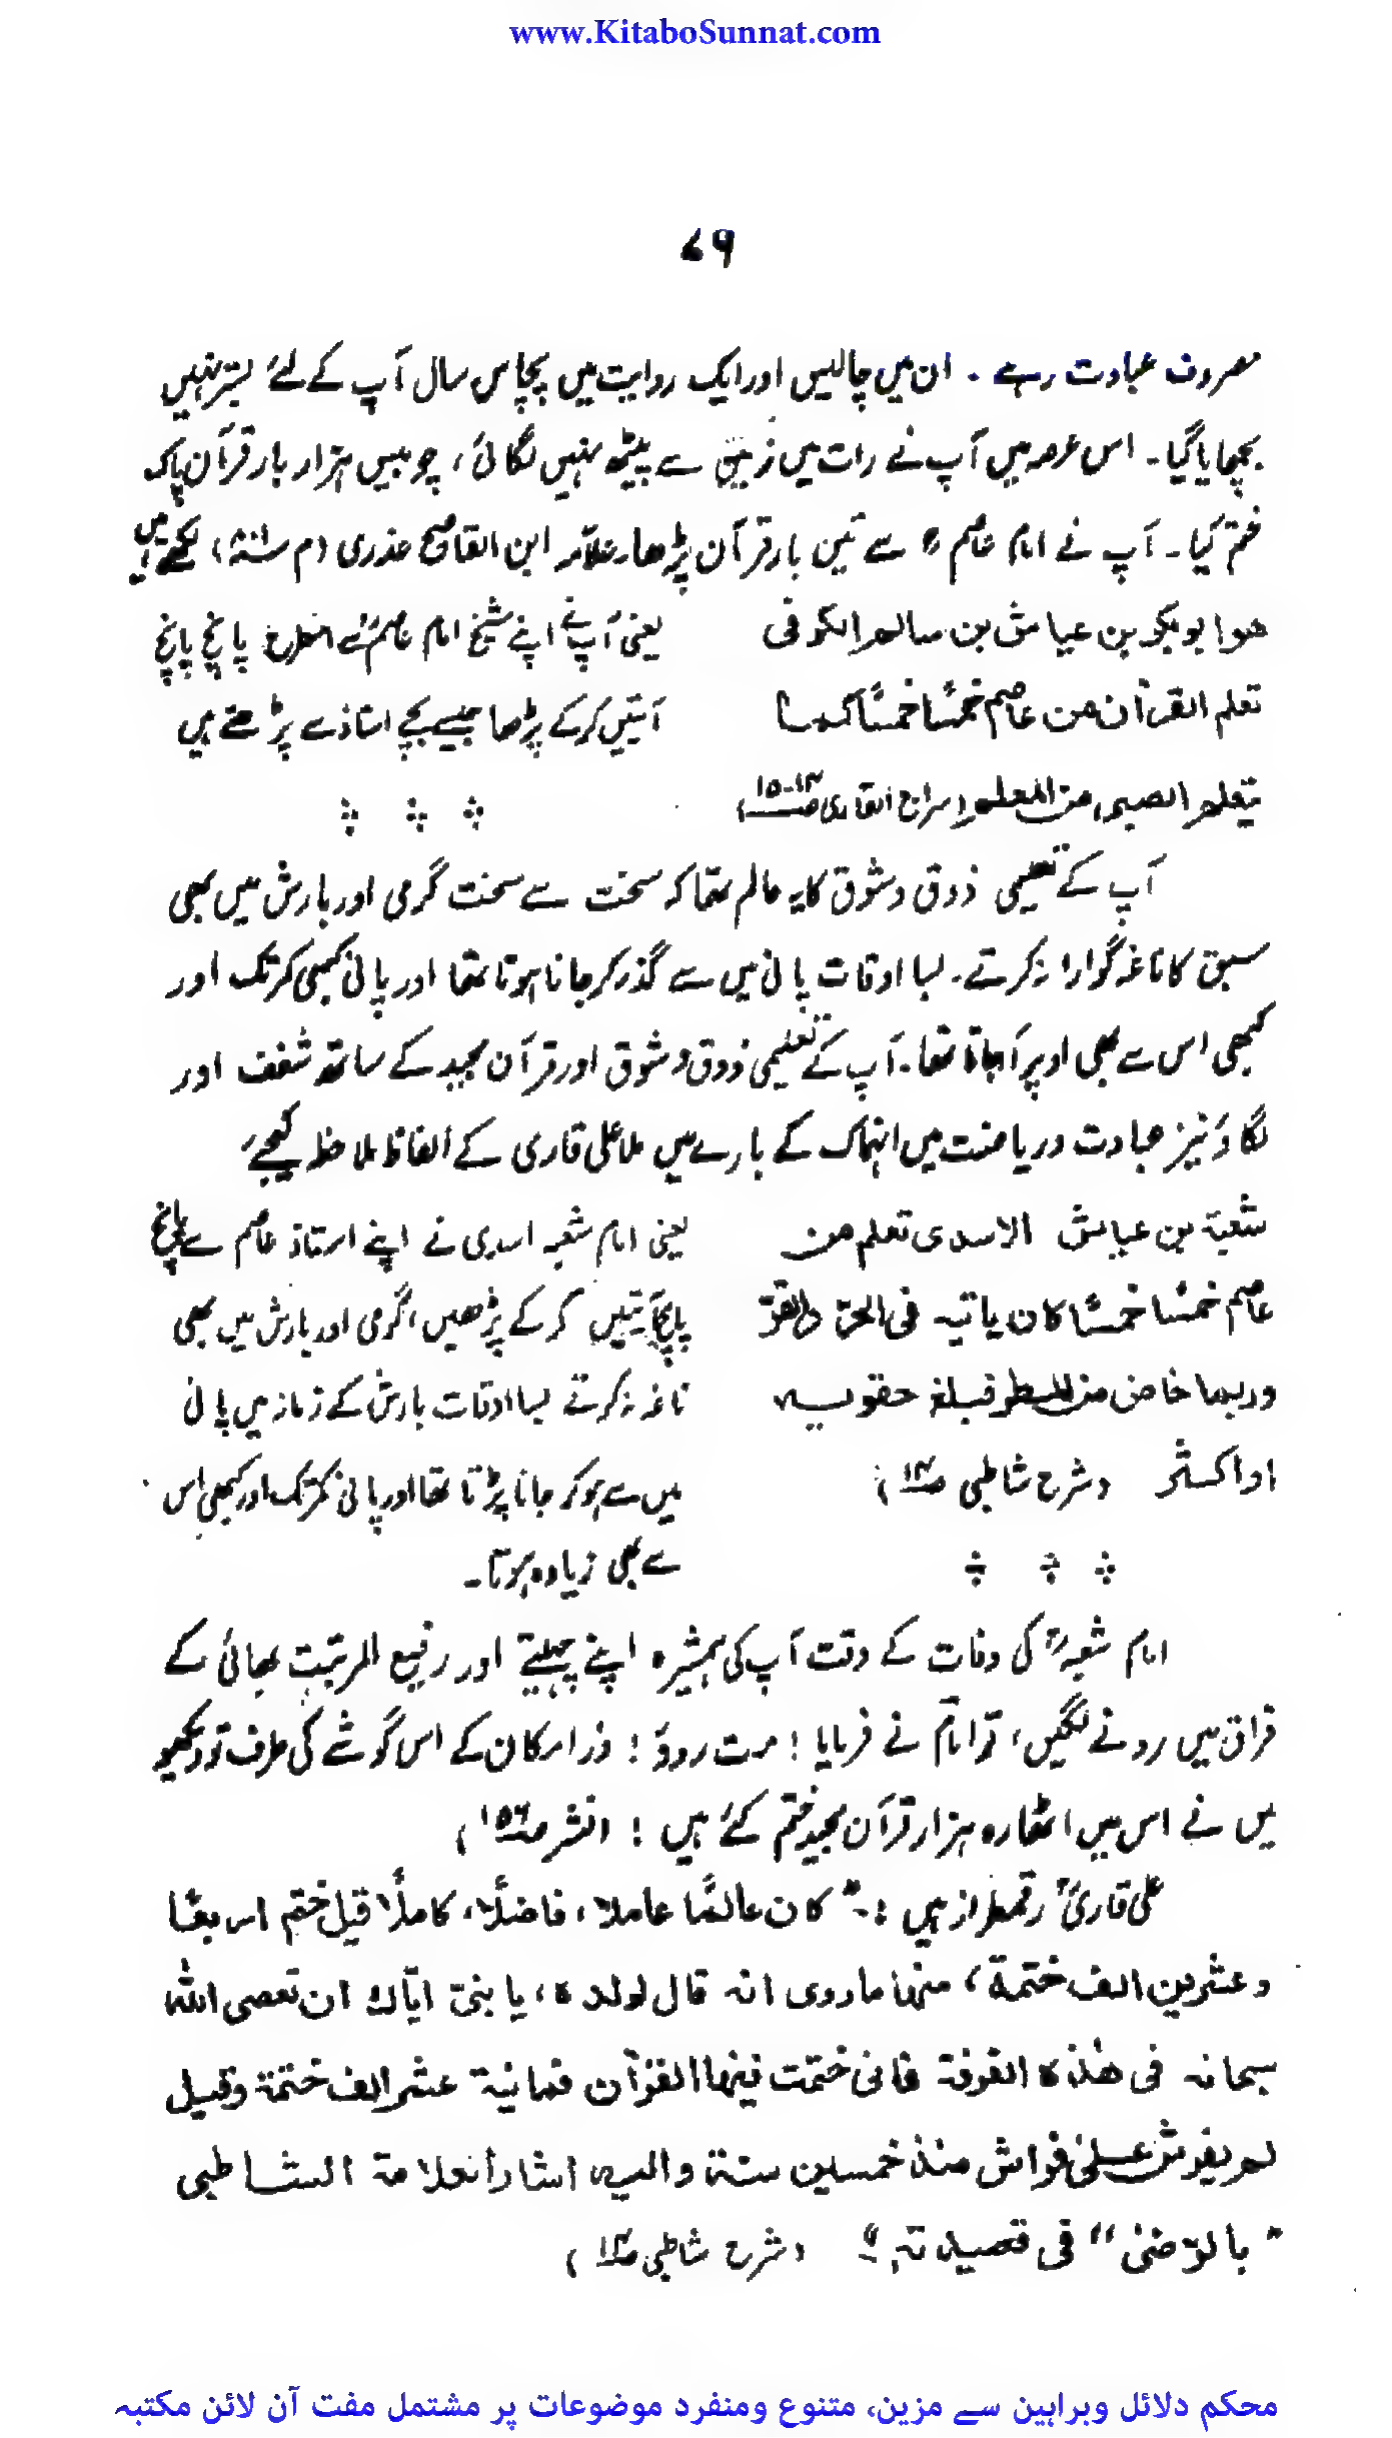 www.KitaboSunnat.com
۷۹
مصروف عبادت رہے ۔ ان میں چالیس اور ایک روایت میں پچاس سال آپ کے لئے بستر نہیں
بچھایا گیا۔ اس عرصہ میں آپ نے رات میں زمین سے پیٹھ نہیں لگائی، چوبیس ہزار بار قرآن پاک
ختم کیا۔ آپ نے امام عاصمؒ سے تین بار قرآن پڑھا، علامہ ابن القاصح عذری (م ) لکھتے ہیں
ھو ابو بکر بن عیاش بن سالم الکوفی
تعلم القرآن من عاصم خمسًا خمسًا کما
یتعلم الصبی من المعلم (سراج القاری ص۱۴-۱۵)
یعنی آپ نے اپنے شیخ امام عاصمؒ سے اسطرح پانچ پانچ
آیتیں کر کے پڑھا جیسے بچے استاذ سے پڑھتے ہیں
آپ کے تعلیمی ذوق و شوق کا یہ عالم تھا کہ سخت سے سخت گرمی اور بارش میں بھی
سبق کا ناغہ گوارا نہ کرتے۔ بسا اوقات پانی میں سے گذر کر جانا ہوتا تھا اور پانی کبھی کمر تک اور
کبھی اس سے بھی اوپر آجاتا تھا۔ آپ کے تعلیمی ذوق و شوق اور قرآن مجید کے ساتھ شغف اور
لگاؤ نیز عبادت و ریاضت میں انہماک کے بارے میں ملا علی قاری کے الفاظ ملاحظہ کیجئے،
شعبۃ بن عیاش الاسدی تعلم من
عاصم خمسًا خمسًا کان یاتیہ فی الحرّ والقرّ
وربما خاض من المطر فبلغ حقویہ
او اکثر (شرح شاطبی ص۱۴)
یعنی امام شعبہ اسدی نے اپنے استاذ عاصم سے پانچ
پانچ آیتیں کر کے پڑھیں، گرمی اور بارش میں بھی
ناغہ نہ کرتے بسا اوقات بارش کے زمانہ میں پانی
میں سے ہو کر جانا پڑتا تھا اور پانی کمر تک اور کبھی اس
سے بھی زیادہ ہوتا۔
امام شعبہؒ کی وفات کے وقت آپ کی ہمشیرہ اپنے چہیتے اور رفیع المرتبت بھائی کے
فراق میں رونے لگیں، تو امام نے فرمایا ! مت روؤ ! ذرا مکان کے اس گوشے کی طرف تو دیکھو
میں نے اس میں اٹھارہ ہزار قرآن مجید ختم کئے ہیں ! (نشر ص۱۵۶)
علی قاریؒ رقمطراز ہیں :۔" کان عالمًا عاملا، فاضلًا، کاملًا قیل ختم اربعًا
وعشرین الف ختمۃ، منہا ما روی انہ قال لولدہ، یا بنیّ ایّاك ان تعصی اللہ
سبحانہ فی ھٰذہ الغرفۃ فانی ختمت فیہا القرآن ثمانیۃ عشر الف ختمۃ وقیل
لم یفرش علیٰ فراش منذ خمسین سنۃ والیہ اشار العلامۃ الشاطبی
"بالرّضیٰ" فی قصیدتہ" (شرح شاطبی ص۱۴)
محکم دلائل وبراہین سے مزین، متنوع ومنفرد موضوعات پر مشتمل مفت آن لائن مکتبہ